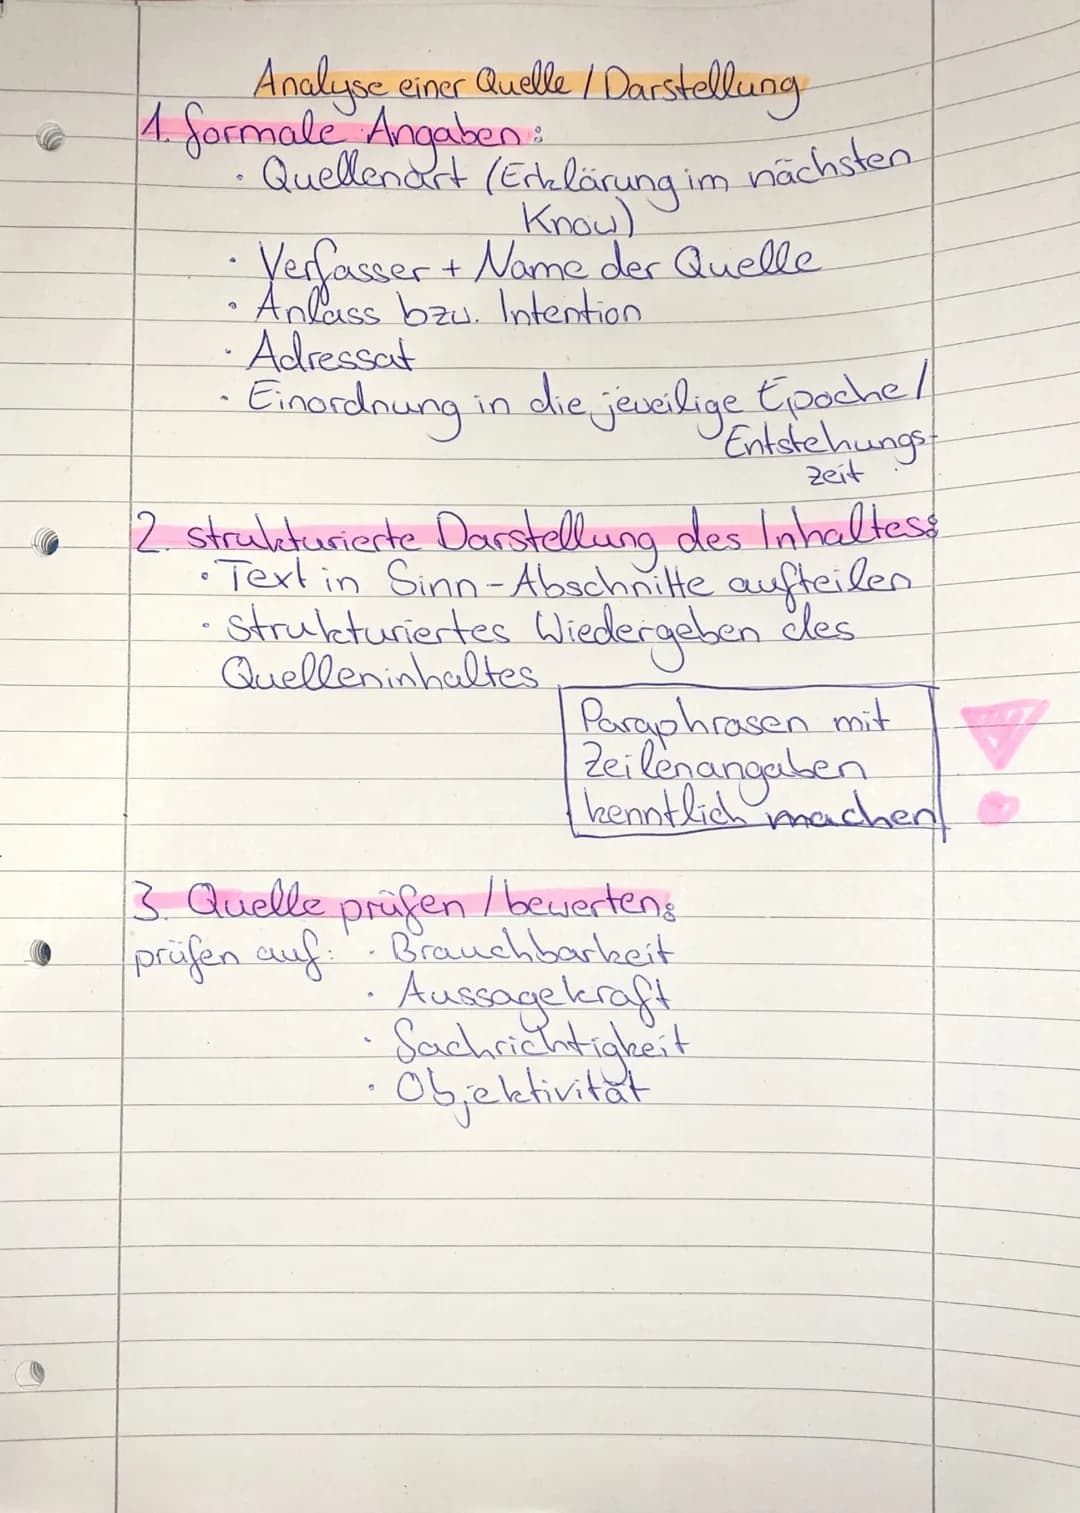 Analyse einer Quelle / Darstellung
1. formale Angaben:
· Quellenart (Erklärung im nächsten
Know)
· Verfasser + Name der Quelle
· Anlass bzw. Intention
· Adressat
· Einordnung in die jeweilige Epoche /
Entstehungs-
zeit
2. strukturierte Darstellung des Inhaltes:
· Text in Sinn-Abschnitte aufteilen
· strukturiertes Wiedergeben des
Quelleninhaltes
Paraphrasen mit
Zeilenangaben
kenntlich machen
3. Quelle prüfen / bewerten:
prüfen auf: · Brauchbarkeit
· Aussagekraft
· Sachrichtigkeit
· Objektivität